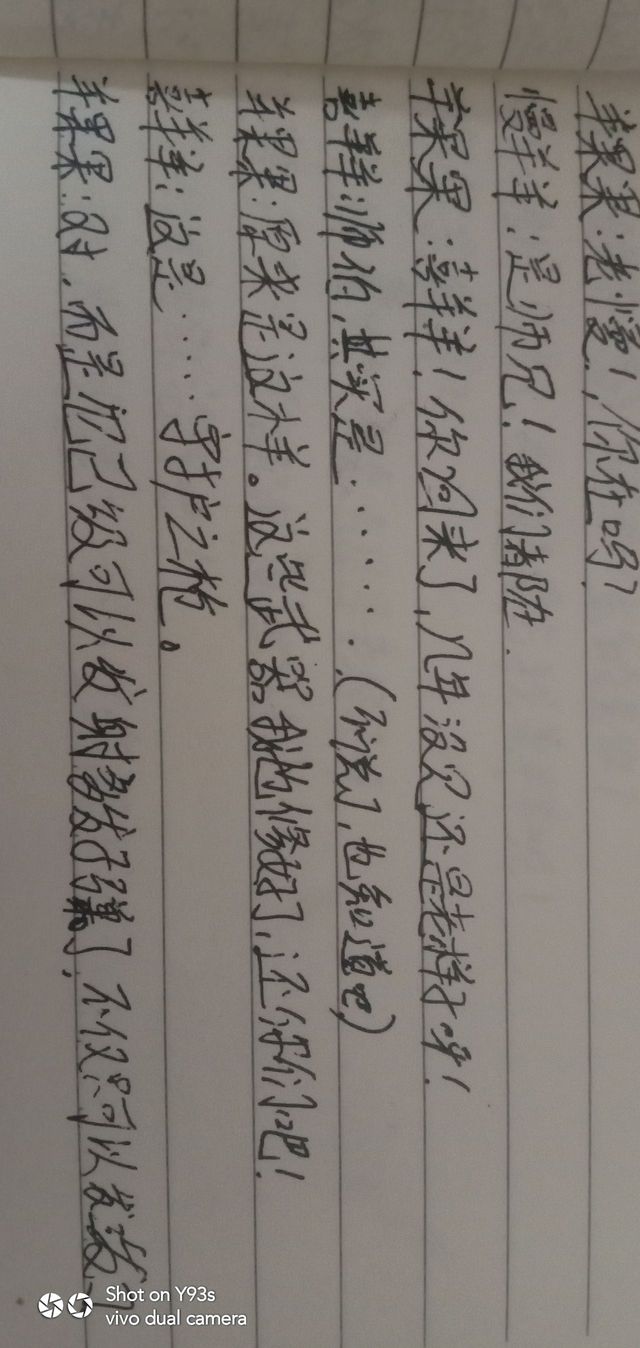 苹果果：老慢！你在吗？
慢羊羊：是师兄！我们都在.
苹果果：喜羊羊！你回来了，几年没见还是老样子呀！
喜羊羊：师伯，其实是.......（不说了，也知道吧）
苹果果：原来是这样。这些武器我也修好了，还你们吧！
喜羊羊：这是......守护之枪。
苹果果：对，而且它已级可以发射多发子弹了，不仅只可以发
Shot on Y93s
vivo dual camera